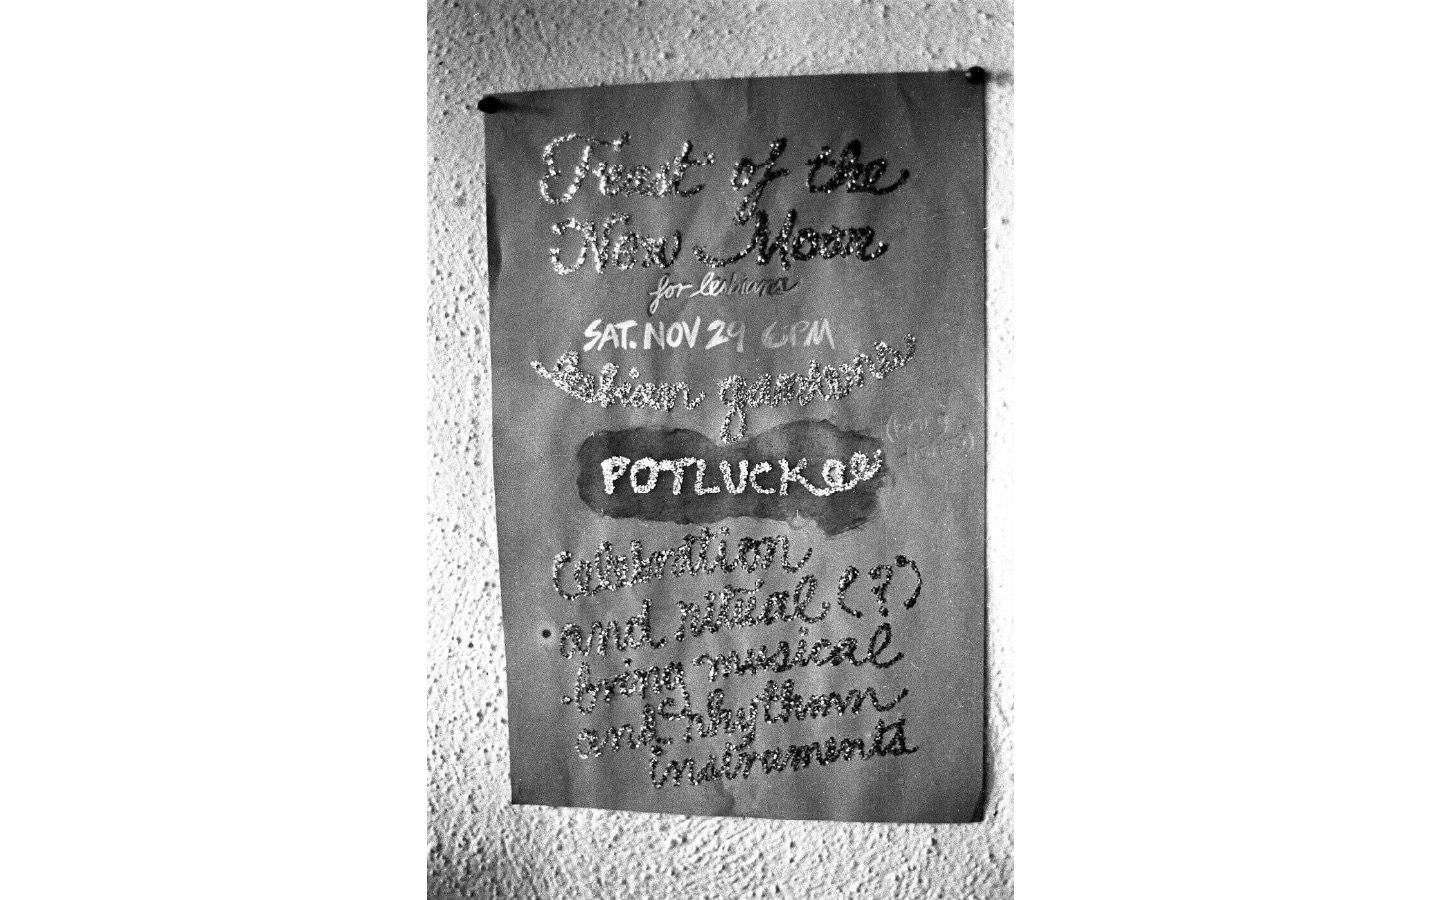 Feast of the
New Moon
for lesbians
SAT. NOV 29 6PM
gardens
(bring
POTLUCK
celebration
and ritual (?)
bring musical
and rhythmn
instruments